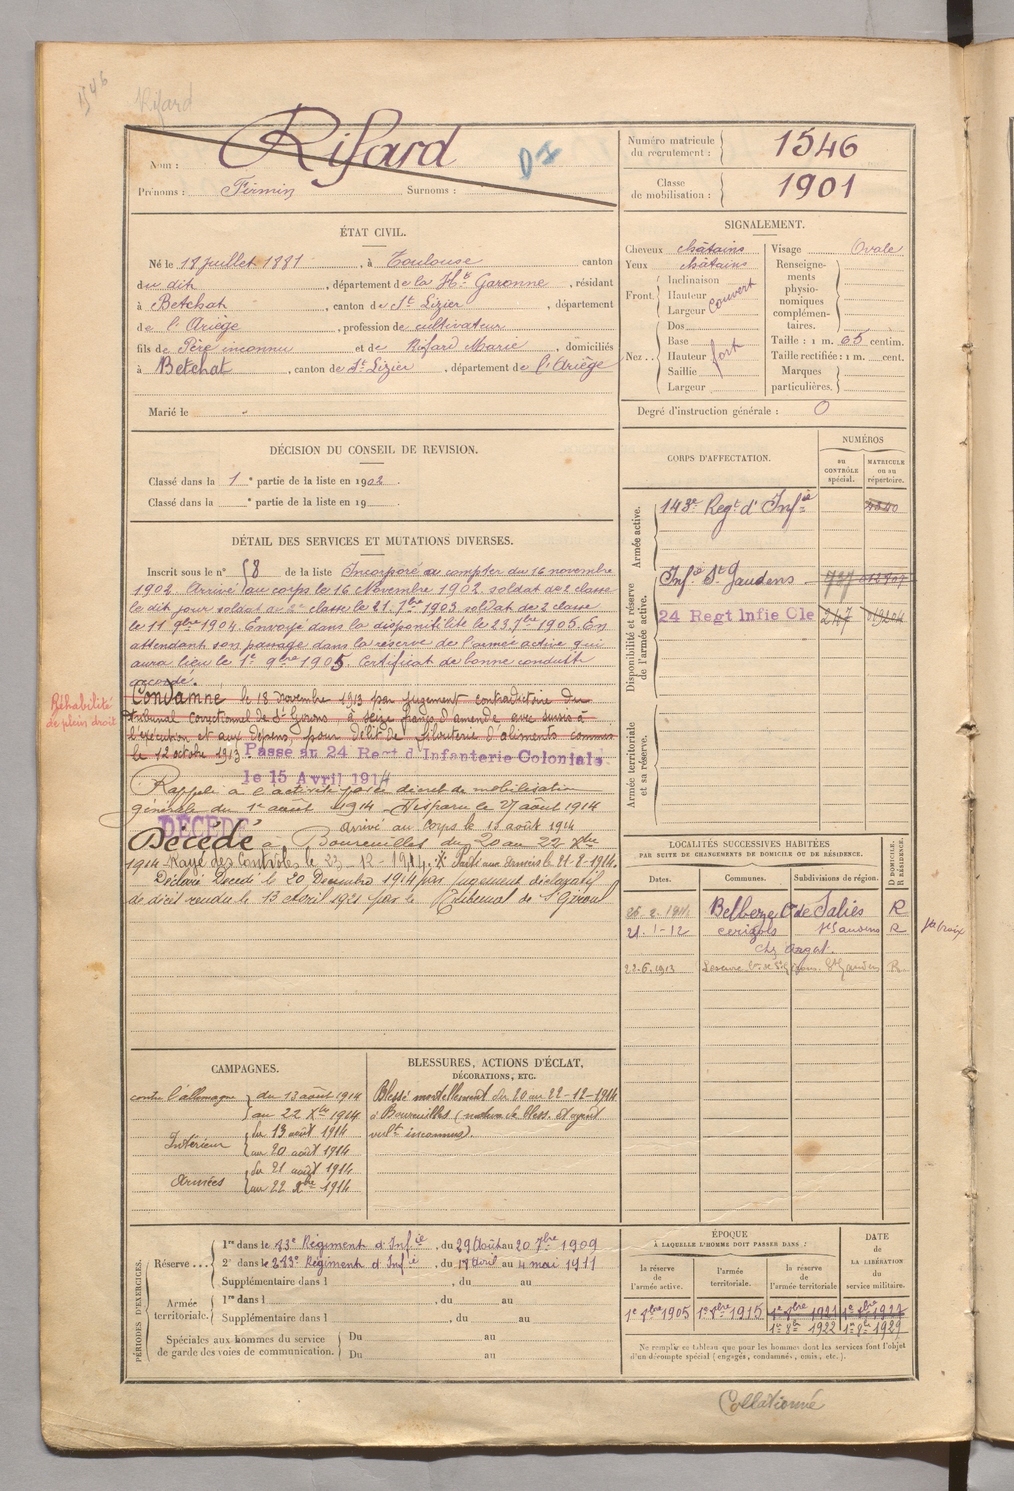 1546
Rifard
Nom : Rifard
D
Prénoms : Firmin Surnoms :
Numéro matricule du recrutement : 1546
Classe de mobilisation : 1901
ÉTAT CIVIL.
Né le 18 juillet 1881, à Toulouse canton
du dit, département de la Hte Garonne, résidant
à Betchat, canton de St Lizier, département
de l'Ariège, profession de cultivateur
fils de Père inconnu et de Rifard Marie, domiciliés
à Betchat, canton de St Lizier, département de l'Ariège
Marié le
SIGNALEMENT.
Cheveux châtains
Yeux châtains
Front. Inclinaison
Hauteur couvert
Largeur
Nez.. Dos
Base
Hauteur fort
Saillie
Largeur
Visage Ovale
Renseigne-
ments
physio-
nomiques
complémen-
taires.
Taille : 1 m. 65 centim.
Taille rectifiée : 1 m. cent.
Marques
particulières.
Degré d'instruction générale : 0
DÉCISION DU CONSEIL DE REVISION.
Classé dans la 1e partie de la liste en 1902.
Classé dans la e partie de la liste en 19
CORPS D'AFFECTATION.
NUMÉROS
au CONTRÔLE spécial.
MATRICULE ou au répertoire.
Armée active.
143e Regt d'Infie
Disponibilité et réserve de l'armée active.
Infie St Gaudens 727
24 Regt Infie Cle 247
Armée territoriale et sa réserve.
DÉTAIL DES SERVICES ET MUTATIONS DIVERSES.
Inscrit sous le n° 58 de la liste Incorporé à compter du 16 novembre
1902. Arrivé au corps le 16 Novembre 1902 soldat de 2 classe
le dit jour soldat de 1e classe le 21 7bre 1903 soldat de 2 classe
le 11 9bre 1904. Envoyé dans la disponibilité le 23 7bre 1905. En
attendant son passage dans la réserve de l'armée active qui
aura lieu le 1e 9bre 1905. Certificat de bonne conduite
accordé.
Réhabilité
de plein droit
Condamné le 18 novembre 1913 par jugement contradictoire du
tribunal correctionnel de St Girons à seize francs d'amende avec sursis à
l'exécution et aux dépens, pour délit de filouterie d'aliments commis
le 12 octobre 1913. Passé au 24 Regt d'Infanterie Coloniale
le 15 Avril 1914
Rappelé à l'activité par le décret de mobilisation
générale du 1e août 1914 Disparu le 27 août 1914
DÉCÉDÉ Arrivé au Corps le 13 août 1914
Décédé à Boureuilles du 20 au 22 Xbre
1914 Rayé des Contrôles le 23-12-1914. X Parti aux armées le 21-8-1914.
Déclaré Décédé le 20 Décembre 1914 par jugement déclaratif
de décès rendu le 13 Avril 1921 par le Tribunal de St Girons
LOCALITÉS SUCCESSIVES HABITÉES
PAR SUITE DE CHANGEMENTS DE DOMICILE OU DE RÉSIDENCE.
Dates. Communes. Subdivisions de région. D DOMICILE. R RÉSIDENCE.
Belbeze Con de Salies R
21-1-12 cerizols St Gaudens R Ste Croix
chz
22-6-1913 St Gaudens R
CAMPAGNES.
contre l'allemagne du 13 août 1914
au 22 Xbre 1914
Intérieur du 13 août 1914
au 20 août 1914
Armées du 21 août 1914
au 22 Xbre 1914
BLESSURES, ACTIONS D'ÉCLAT,
DÉCORATIONS, ETC.
Blessé mortellement du 20 au 22-12-1914
à Boureuilles (nature de bless. et agent
vult inconnus).
PÉRIODES D'EXERCICES.
Réserve... 1re dans le 83e Régiment d'Infie, du 29 Août au 20 7bre 1909
2e dans le 283e Régiment d'Infie, du 18 Avril au 4 mai 1911
Supplémentaire dans l , du au
Armée territoriale. 1re dans l , du au
Supplémentaire dans l , du au
Spéciales aux hommes du service
de garde des voies de communication. Du au
Du au
ÉPOQUE
À LAQUELLE L'HOMME DOIT PASSER DANS :
la réserve de l'armée active. l'armée territoriale. la réserve de l'armée territoriale
DATE
de
LA LIBÉRATION
du
service militaire.
1e 9bre 1905 1e 8bre 1915 1e 8bre 1921 1e 8bre 1927
1e 8e 1922 1e 8e 1929
Ne remplir ce tableau que pour les hommes dont les services font l'objet
d'un décompte spécial (engagés, condamnés, omis, etc.).
Collationné